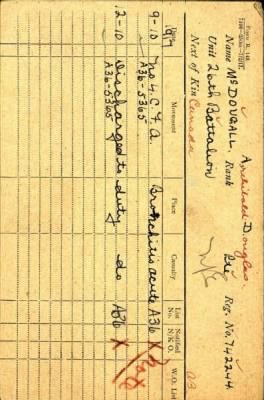 Form R. 149.
Name McDOUGALL, Archibald Douglas Rank Pte Reg. No. 742244
Unit 26th Battalion
Next of Kin Canada
Date Movement Place Casualty List No. Notified N/K/O. W.O. List
1917
9-10 No 4 C. F. A. Bronchitis acute A36 X
A36-5365
12-10 Discharged to duty do A36 X
A36-5365